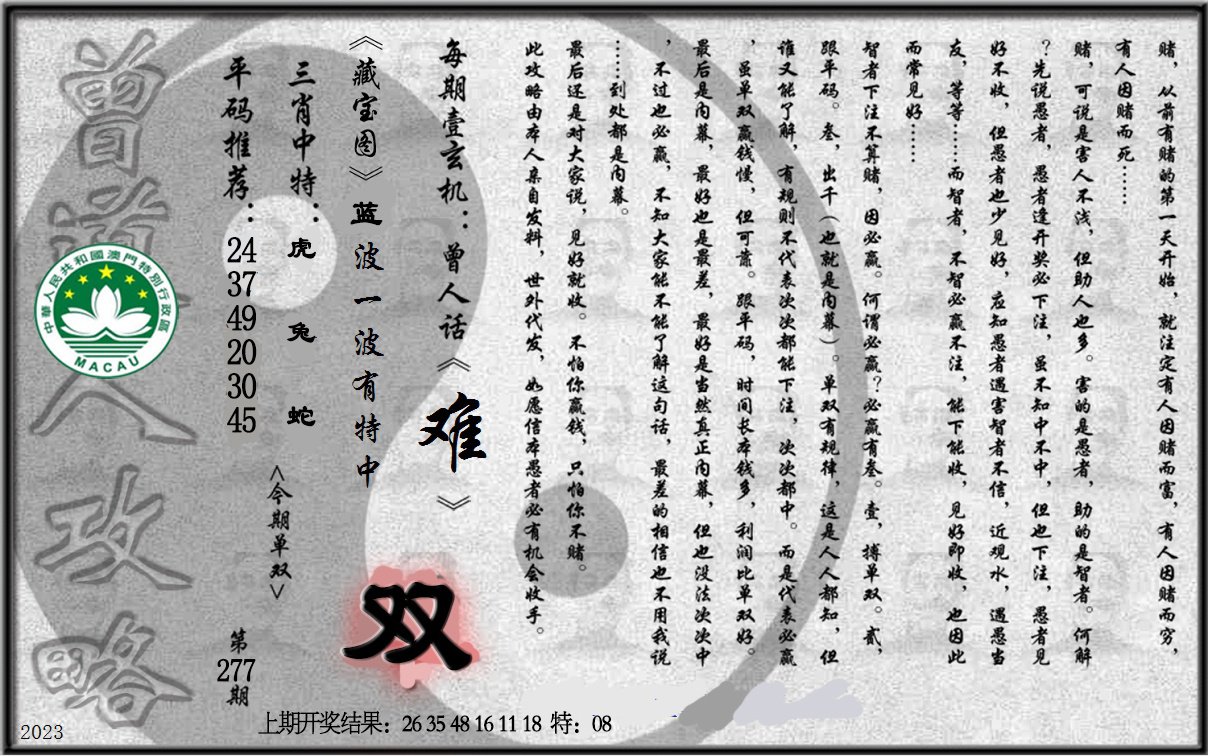 赌，从前有赌的第一天开始，就注定有人因赌而富，有人因赌而穷，
有人因赌而死……
赌，可说是害人不浅，但助人也多。害的是愚者，助的是智者。何解
？先说愚者，愚者逢开奖必下注，虽不知中不中，但也下注，愚者见
好不收，但愚者也少见好，应知愚者遇害智者不信，近观水，遇愚当
友，等等……而智者，不智必赢不注，能下能收，见好即收，也因此
而常见好……
智者下注不算赌，因必赢。何谓必赢？必赢有叁。壹，搏单双。贰，
跟平码。叁，出千（也就是内幕）。单双有规律，这是人人都知，但
谁又能了解，有规则不代表次次都能下注，次次都中。而是代表必赢
，虽单双赢钱慢，但可靠。跟平码，时间长本钱多，利润比单双好。
最后是内幕，最好也是最差，最好是当然真正内幕，但也没法次次中
，不过也必赢，不知大家能不能了解这句话，最差的相信也不用我说
……到处都是内幕。
最后还是对大家说，见好就收。不怕你赢钱，只怕你不赌。
此攻略由本人亲自发料，世外代发，如愿信本愚者必有机会收手。
每期壹玄机：曾人话《难》
《藏宝图》蓝波一波有特中
双
三肖中特：虎 兔 蛇
<今期单双>
平码推荐：24 37 49 20 30 45
第277期
曾道人攻略
中華人民共和國澳門特別行政區
MACAU
上期开奖结果：26 35 48 16 11 18 特：08
2023